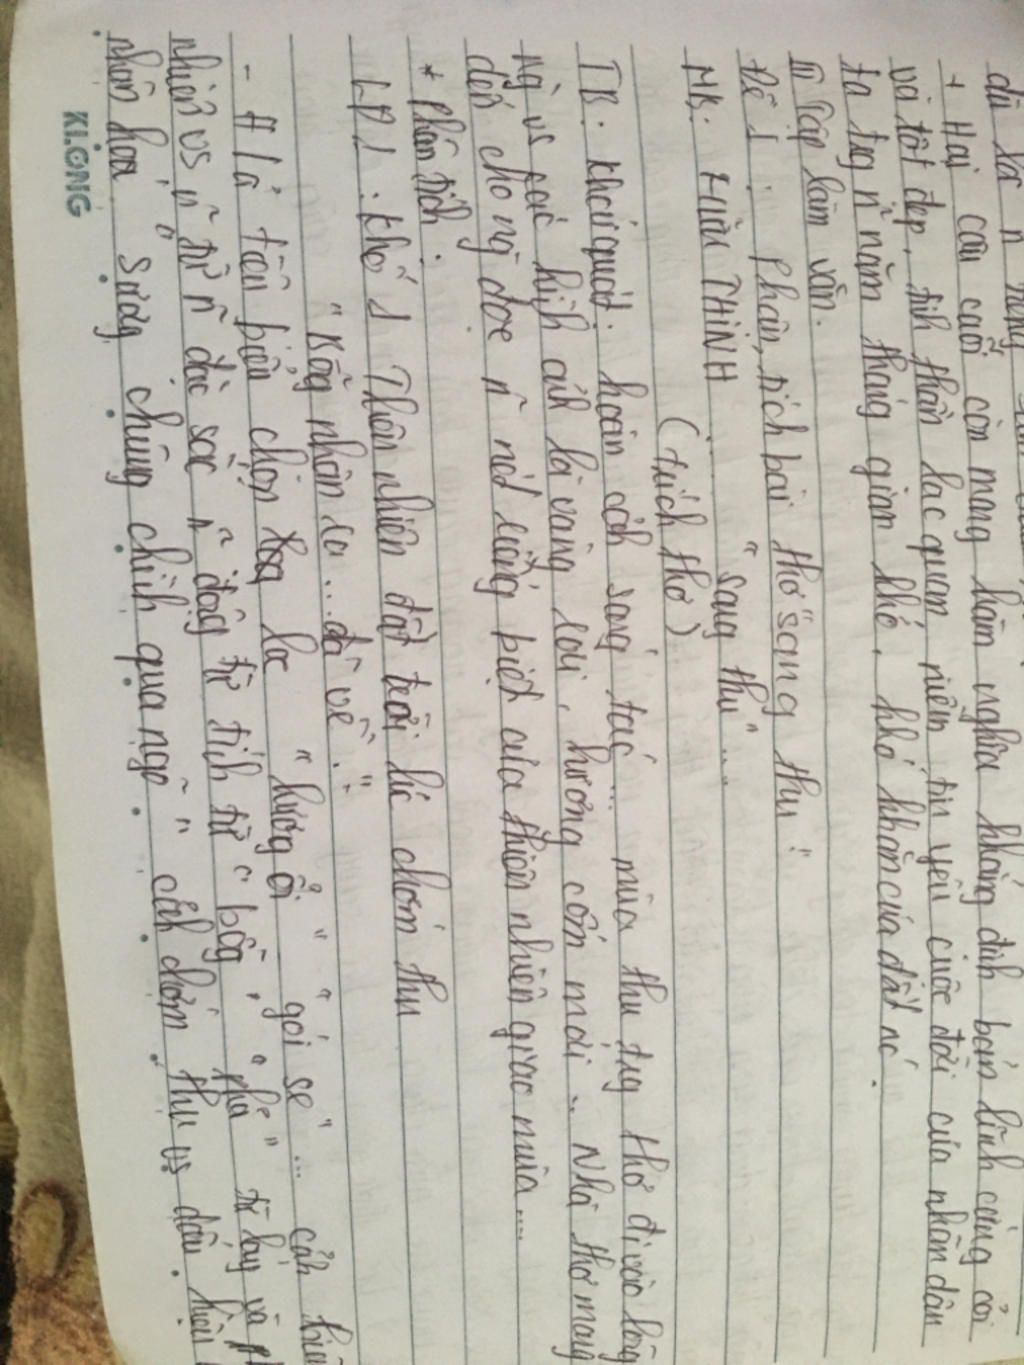 dù là n
+ Hai câu cuối còn mang hàm nghĩa khẳng định bản lĩnh cứng cỏi
và tốt đẹp, tinh thần lạc quan niềm tin yêu cuộc đời của nhân dân
ta trg ~ năm tháng gian khó, khó khăn của đất nc.
III Tập làm văn.
Đề 1: Phân tích bài thơ "Sang thu"
MB: HỮU THỈNH ... "Sang thu" ...
(trích thơ)
TB: Khái quát: hoàn cảnh sáng tác ... mùa thu trg thơ đi vào lòng
ng vs các hình ảnh lá vàng rơi, hương cốm mới .. Nhà thơ mang
đến cho ng đọc n nét riêng biệt của thiên nhiên giao mùa ...
* Phân tích:
LĐ1: Khổ 1 Thiên nhiên đất trời lúc chớm thu
"Bỗng nhận ra ... đã về".
- H/ả tiêu biểu chọn lọc "hương ổi" "gió se" ... cảm
nhiên vs ~ từ ~ đặc sắc ~ động từ tính từ "bỗng", "phả" từ láy và
nhân hoá "Sương chùng chình qua ngõ" cảnh chớm thu vs dấu hiệu
KLONG